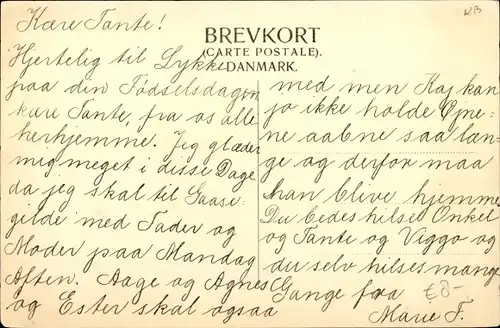 RB
BREVKORT
(CARTE POSTALE).
DANMARK.
Kære Tante!
Hjertelig til Lykke
paa din Fødselsdagen
kære Tante, fra os alle
herhjemme. Jeg glæder
mig meget i disse Dage
da jeg skal til Gaase-
gilde med Fader og
Moder paa Mandag
Aften. Aage og Agnes
og Ester skal ogsaa
med men Kaj kan
jo ikke holde Øjne-
ne aabne saa læn-
ge og derfor maa
han blive hjemme
Du bedes hilse Onkel
og Tante og Viggo og
du selv hilses mange
Gange fra
Marie F.
€8-